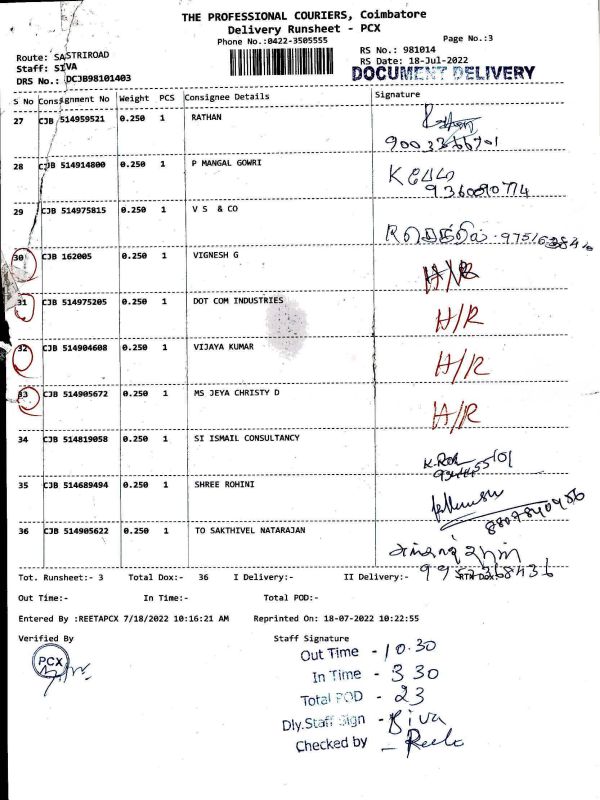 THE PROFESSIONAL COURIERS, Coimbatore
Delivery Runsheet - PCX
Phone No.:0422-3505555
Page No.:3
Route: SASTRIROAD
RS No.: 981014
Staff: SIVA
RS Date: 18-Jul-2022
DRS No.: DCJB98101403
DOCUMENT DELIVERY
S No Consignment No Weight PCS Consignee Details Signature
27 CJB 514959521 0.250 1 RATHAN
28 CJB 514914800 0.250 1 P MANGAL GOWRI
9360090774
29 CJB 514975815 0.250 1 V S & CO
30 CJB 162005 0.250 1 VIGNESH G
31 CJB 514975205 0.250 1 DOT COM INDUSTRIES H/R
32 CJB 514904608 0.250 1 VIJAYA KUMAR H/R
33 CJB 514905672 0.250 1 MS JEYA CHRISTY D H/R
34 CJB 514819058 0.250 1 SI ISMAIL CONSULTANCY
35 CJB 514689494 0.250 1 SHREE ROHINI
8807840456
36 CJB 514905622 0.250 1 TO SAKTHIVEL NATARAJAN
Tot. Runsheet:- 3 Total Dox:- 36 I Delivery:- II Delivery:- RTN Dox:-
Out Time:- In Time:- Total POD:-
Entered By :REETAPCX 7/18/2022 10:16:21 AM Reprinted On: 18-07-2022 10:22:55
Verified By Staff Signature
PCX
Out Time - 10.30
In Time - 3 30
Total POD - 23
Dly.Staff Sign - Siva
Checked by - Reeta